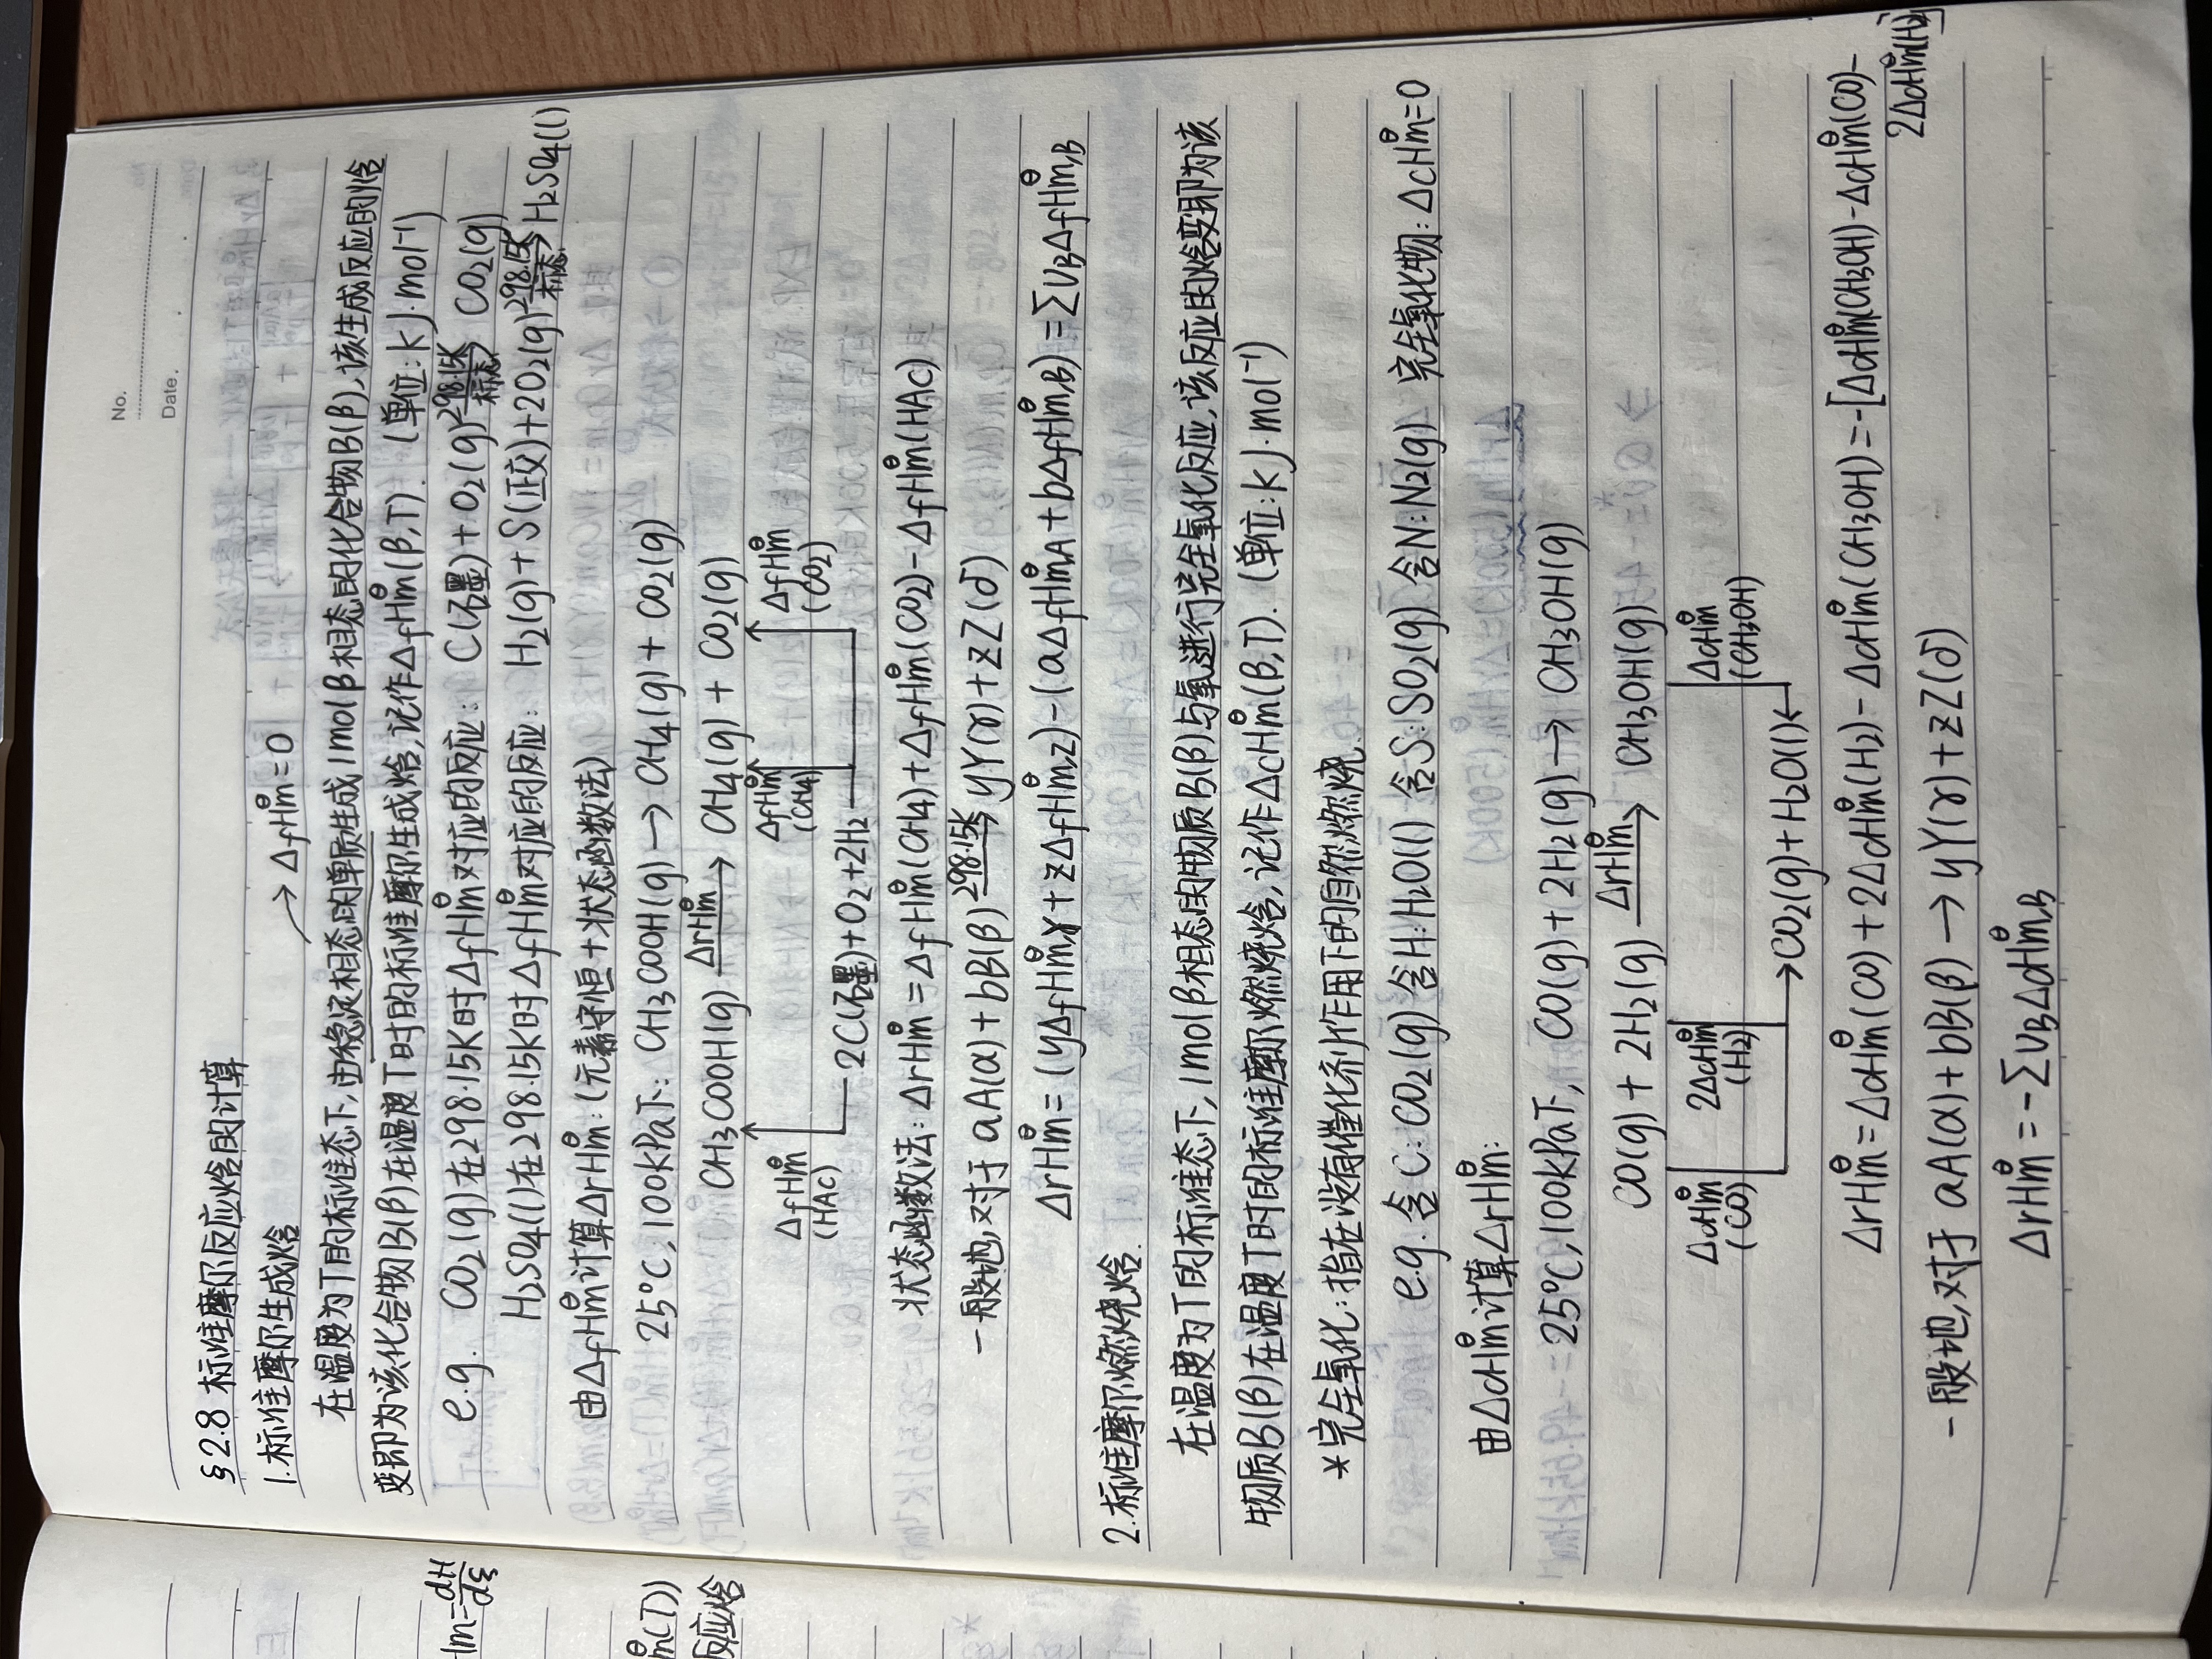 No.
Date.
§2.8 标准摩尔反应焓的计算
1.标准摩尔生成焓
→ ΔfHm⊖=0
在温度为T的标准态下,由稳定相态的单质生成1molβ相态的化合物B(β),该生成反应的焓
变即为该化合物B(β)在温度T时的标准摩尔生成焓,记作ΔfHm⊖(β,T). (单位:kJ·mol⁻¹)
e.g. CO₂(g)在298.15K时ΔfHm⊖对应的反应: C(石墨)+O₂(g) 298.15K→标态 CO₂(g)
H₂SO₄(l)在298.15K时ΔfHm⊖对应的反应: H₂(g)+S(正交)+2O₂(g) 298.15K→标态 H₂SO₄(l)
由ΔfHm⊖计算ΔrHm⊖:(元素守恒+状态函数法)
25°C,100kPa下: CH₃COOH(g)→CH₄(g)+CO₂(g)
CH₃COOH(g) ΔrHm⊖→ CH₄(g)+CO₂(g)
ΔfHm⊖ ΔfHm⊖ ΔfHm⊖
(HAc) (CH₄) (CO₂)
2C(石墨)+O₂+2H₂
状态函数法: ΔrHm⊖=ΔfHm⊖(CH₄)+ΔfHm⊖(CO₂)-ΔfHm⊖(HAc)
一般地,对于 aA(α)+bB(β) 298.15K→ yY(γ)+zZ(δ)
ΔrHm⊖=(yΔfHm⊖,Y+zΔfHm⊖,Z)-(aΔfHm⊖,A+bΔfHm⊖,B)=∑νBΔfHm⊖,B
2.标准摩尔燃烧焓.
在温度为T的标准态下,1molβ相态的物质B(β)与氧进行完全氧化反应,该反应的焓变即为该
物质B(β)在温度T时的标准摩尔燃烧焓,记作ΔcHm⊖(β,T). (单位:kJ·mol⁻¹)
*完全氧化:指在没有催化剂作用下的自然燃烧.
e.g. 含C:CO₂(g) 含H:H₂O(l) 含S:SO₂(g) 含N:N₂(g) 完全氧化物:ΔcHm⊖=0
由ΔcHm⊖计算ΔrHm⊖:
25°C,100kPa下, CO(g)+2H₂(g)→CH₃OH(g)
CO(g)+2H₂(g) ΔrHm⊖→ CH₃OH(g)
ΔcHm⊖ 2ΔcHm⊖ ΔcHm⊖
(CO) (H₂) (CH₃OH)
→CO₂(g)+H₂O(l)←
ΔrHm⊖=ΔcHm⊖(CO)+2ΔcHm⊖(H₂)-ΔcHm⊖(CH₃OH)=-[ΔcHm⊖(CH₃OH)-ΔcHm⊖(CO)-
2ΔcHm⊖(H₂)]
一般地,对于 aA(α)+bB(β)→yY(γ)+zZ(δ)
ΔrHm⊖=-∑νBΔcHm⊖,B
Hm=dH/dξ
m⊖(T))
反应焓